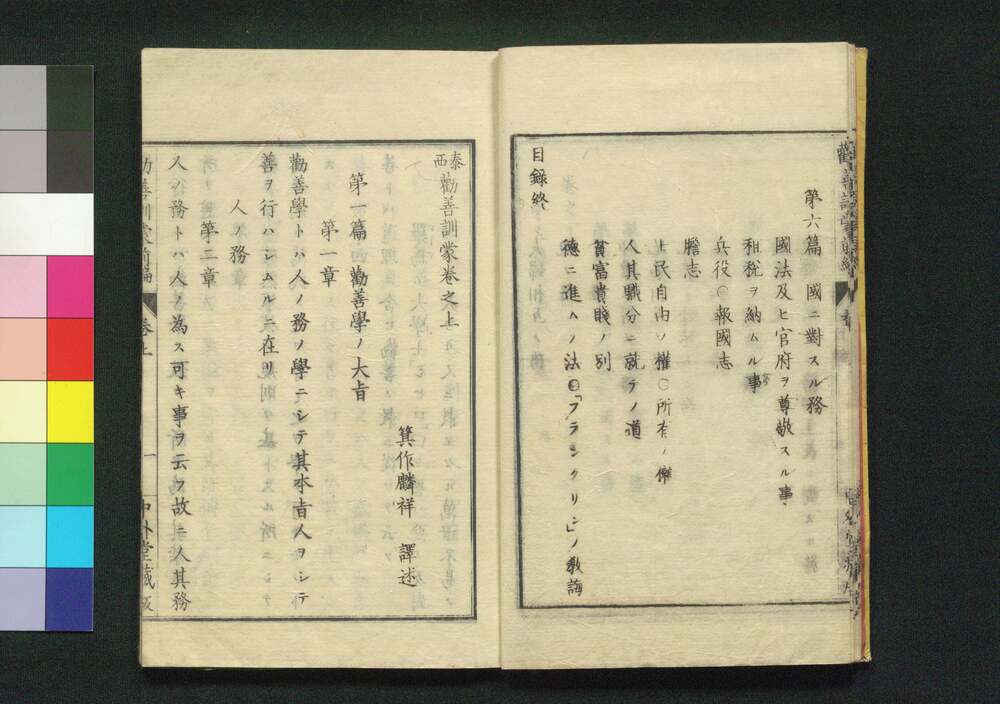 第六篇 國ニ對スル務
國法及ヒ官府ヲ尊敬スル事
租税ヲ納ムル事
兵役〇報國志
膽志
上民自由ノ權〇所有ノ權
人其職分ニ就テノ道
貧富貴賤ノ別
德ニ進ムノ法〇「フランクリン」ノ教誨
目録終
泰西勸善訓蒙巻之上
箕作麟祥 譯述
第一篇 勸善學ノ大旨
第一章
勸善學トハ人ノ務ノ學ニシテ其本旨人ヲシテ
善ヲ行ハシムルニ在リ規則ヲ基トスル所ニシテ
人ノ務
第二章
人ノ務トハ人ノ為ス可キ事ヲ云フ故ニ人其務
勸善訓蒙前編 巻上 一 中外堂藏版